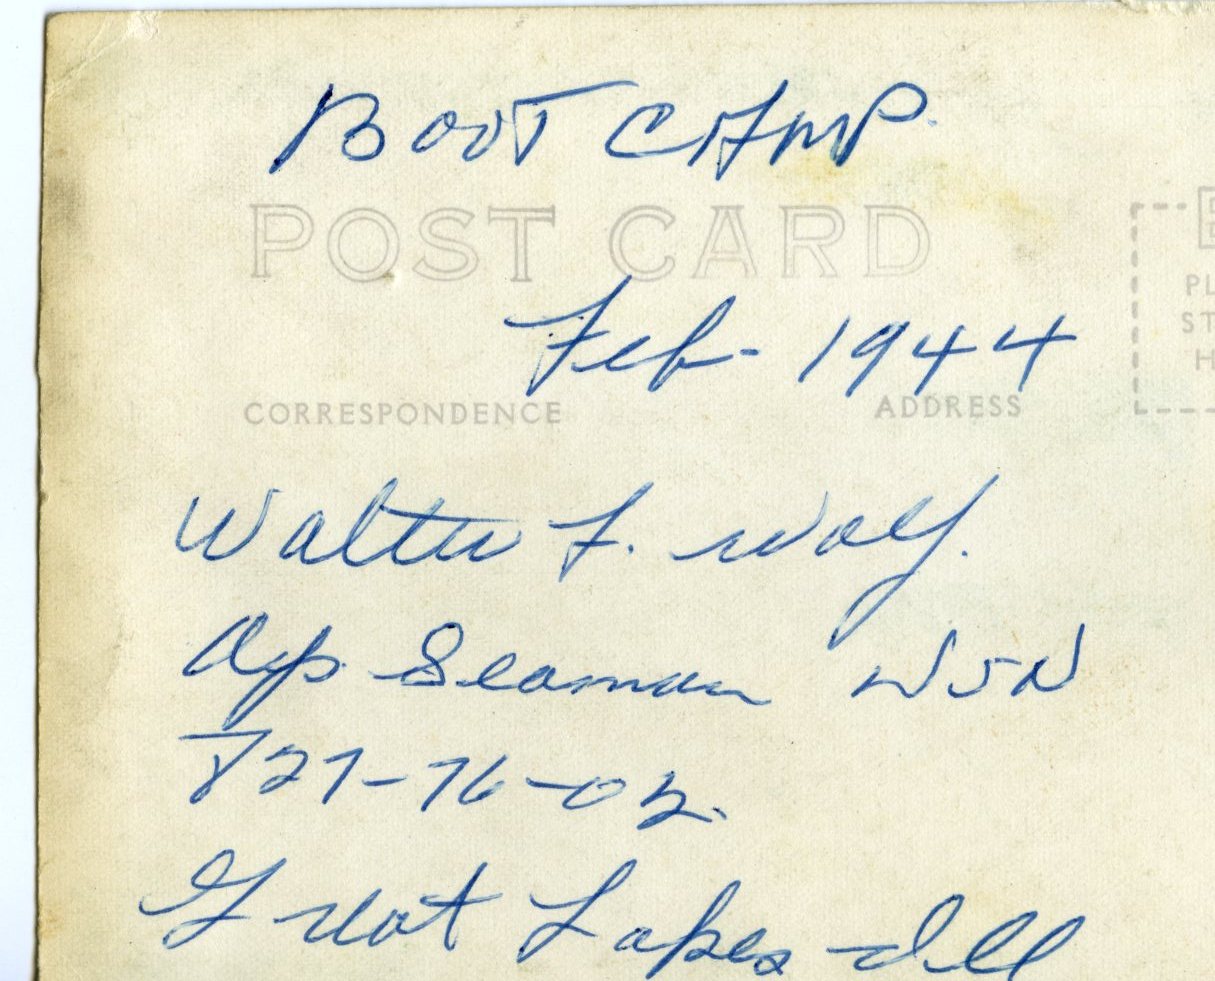 BOOT CAMP.
POST CARD
Feb- 1944
CORRESPONDENCE ADDRESS
PL
ST
H
Walter F. Wolf.
Ap Seaman USN
727-76-02.
Great Lakes Ill